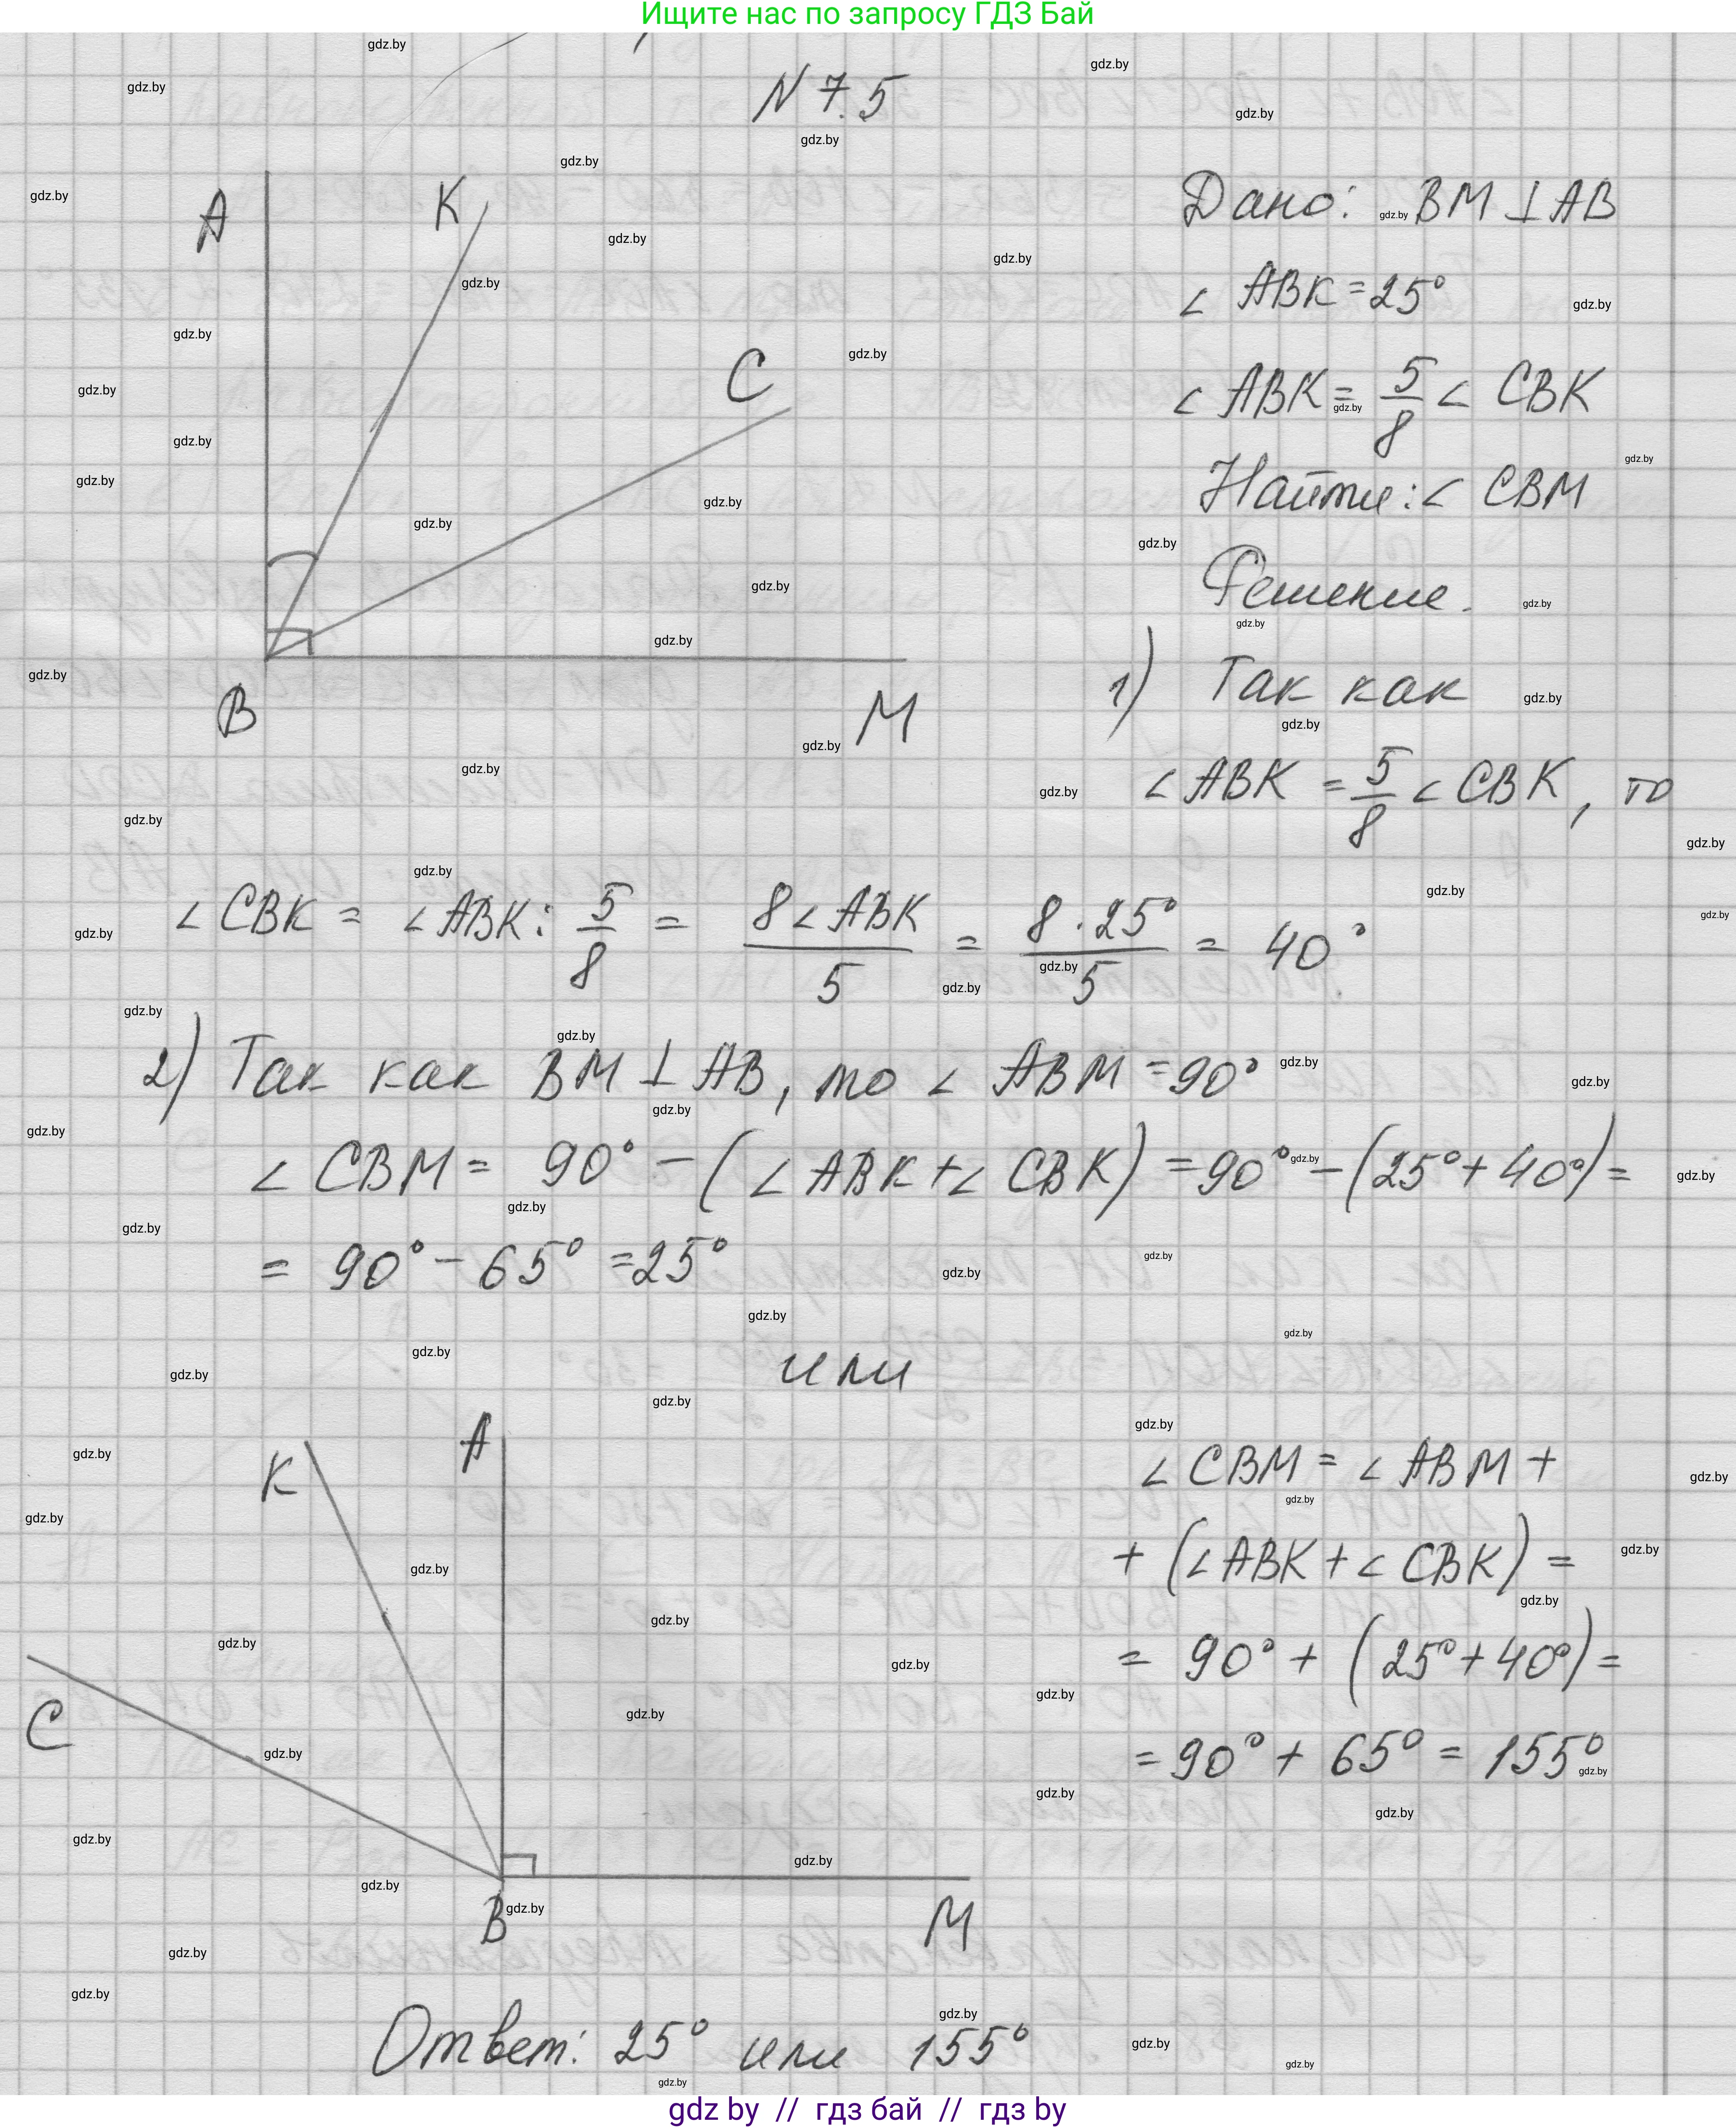 Ищите нас по запросу ГДЗ Бай
N 7.5
A
K
C
B
M
Дано: BM ⊥ AB
∠ ABK = 25°
∠ ABK = 5/8 ∠ CBK
Найти: ∠ CBM
Решение.
1) Так как
∠ ABK = 5/8 ∠ CBK, то
∠ CBK = ∠ ABK : 5/8 = 8∠ ABK/5 = 8 · 25°/5 = 40°.
2) Так как BM ⊥ AB, то ∠ ABM = 90°
∠ CBM = 90° − (∠ ABK + ∠ CBK) = 90° − (25° + 40°) =
= 90° − 65° = 25°
или
K
A
C
B
M
∠ CBM = ∠ ABM +
+ (∠ ABK + ∠ CBK) =
= 90° + (25° + 40°) =
= 90° + 65° = 155°
Ответ: 25° или 155°
gdz.by
gdz by // гдз бай // гдз by